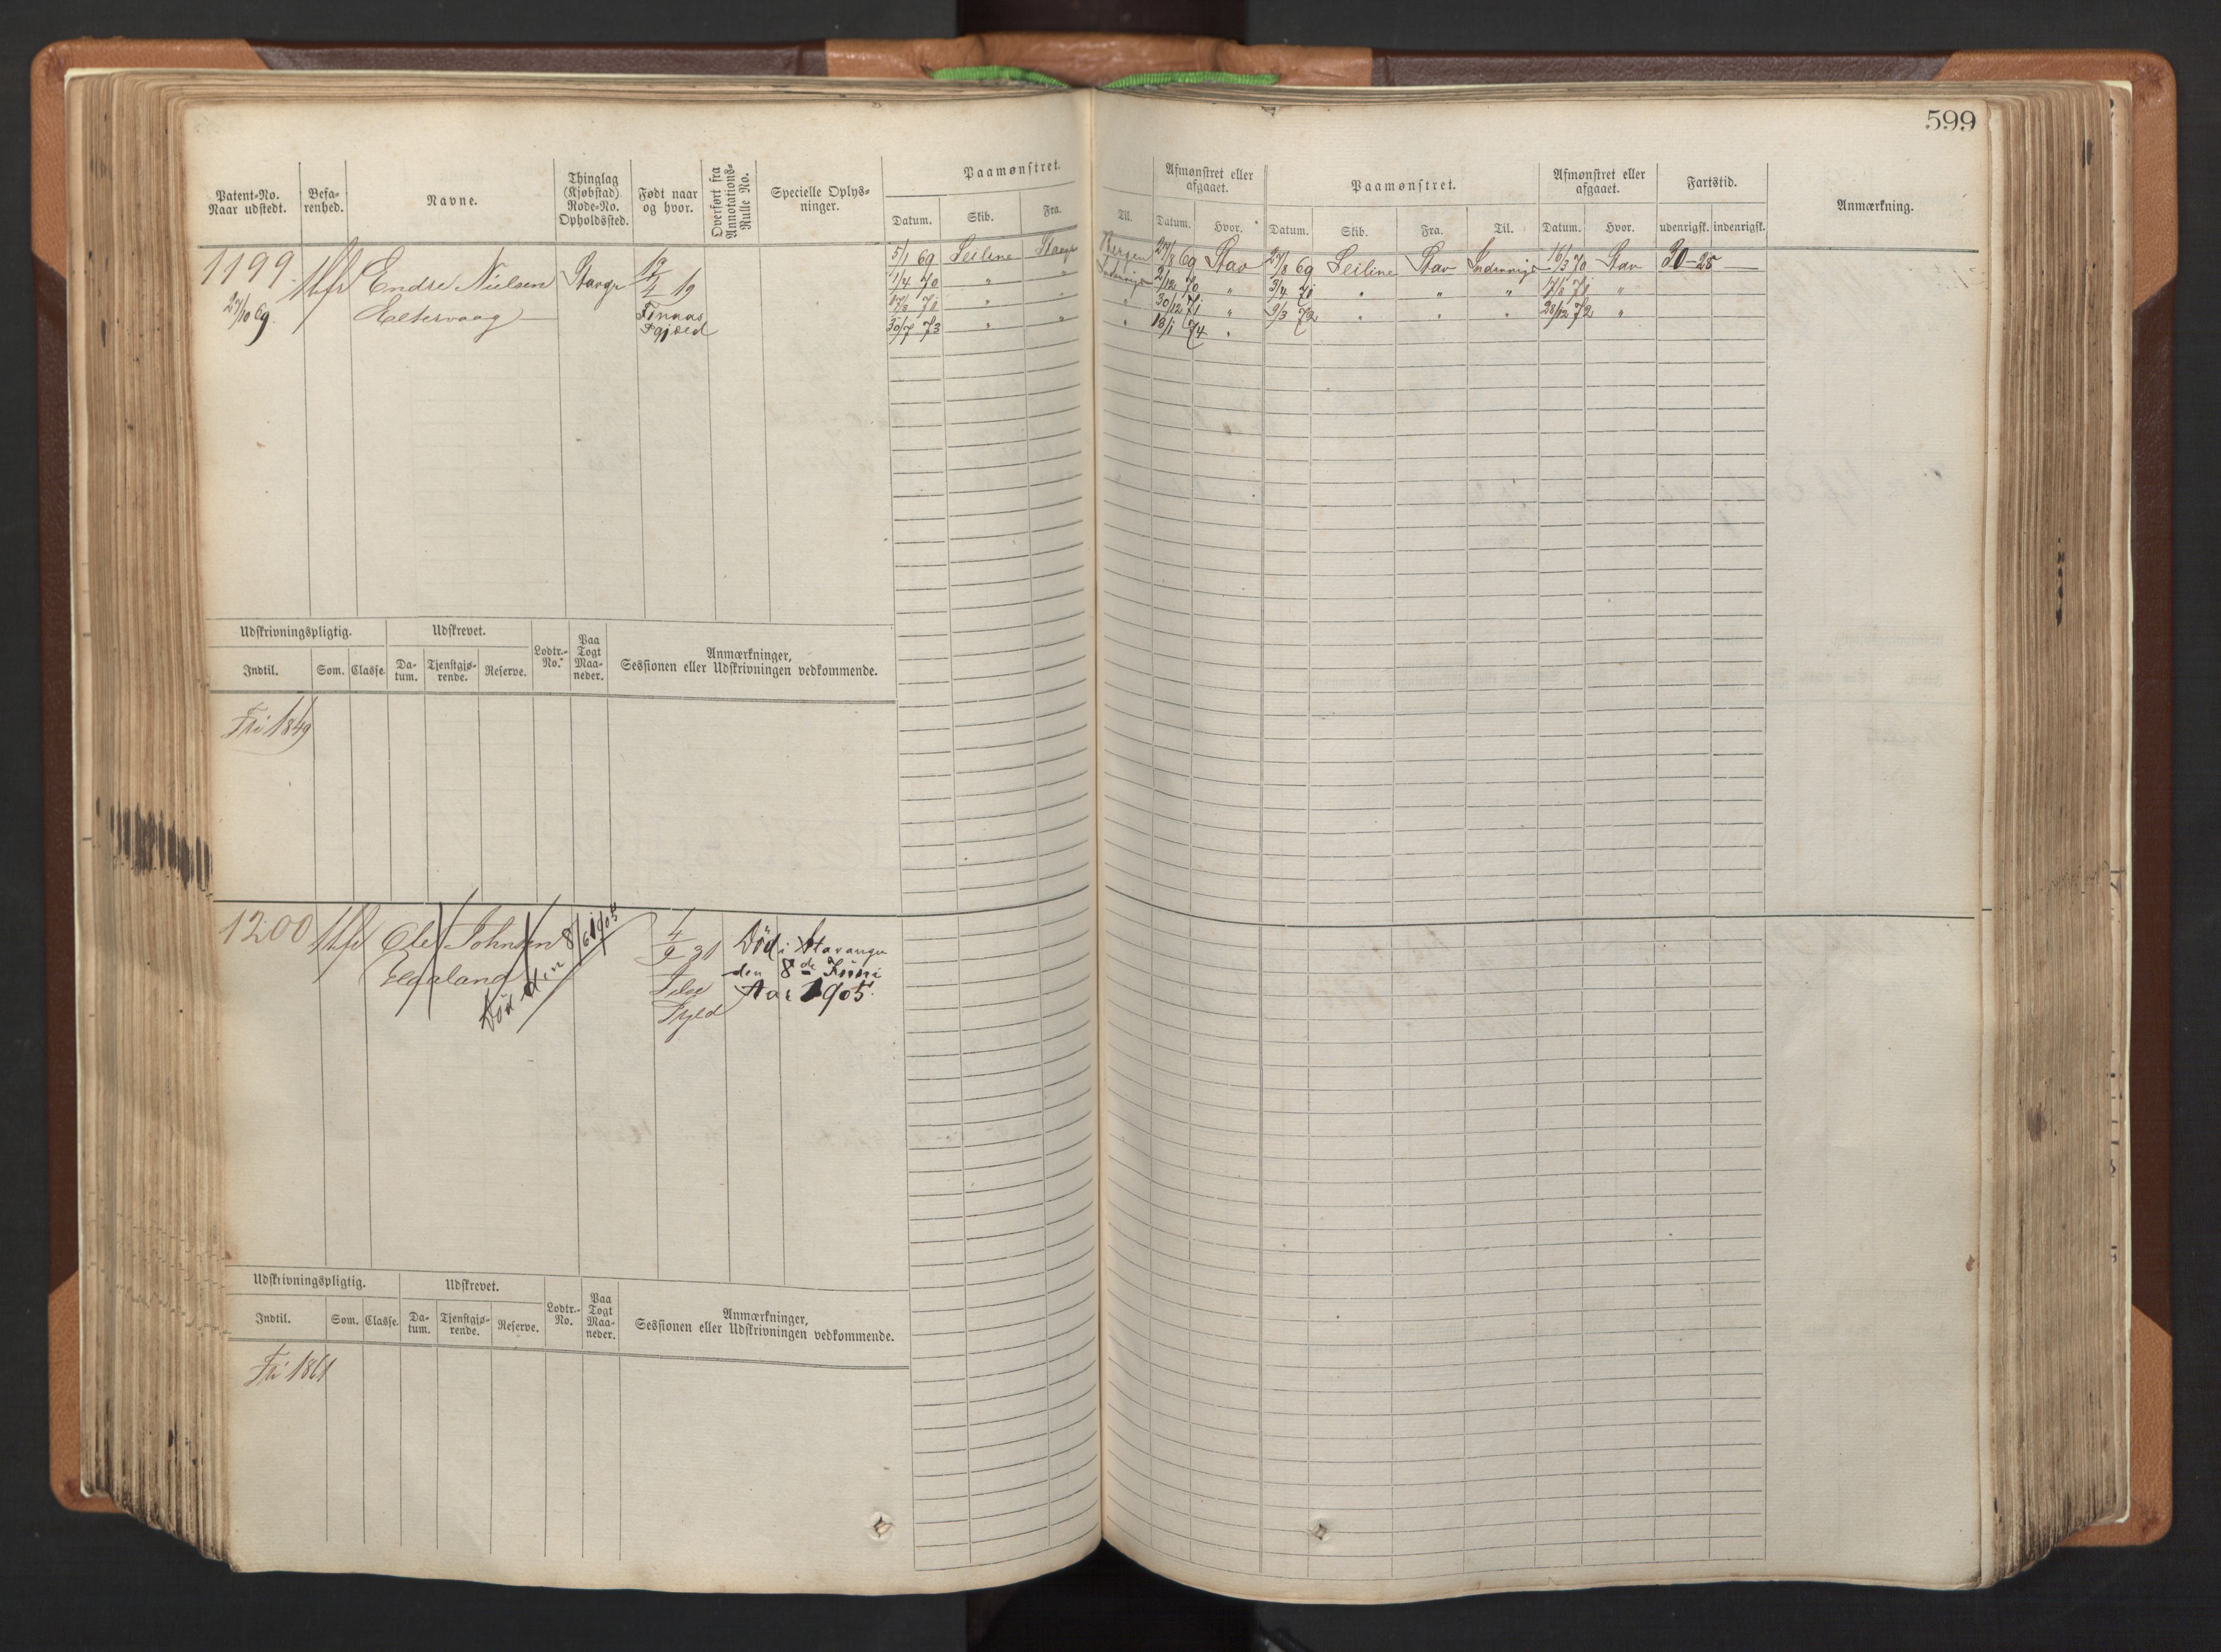 599
Patent-No.
Naar udstedt.
Befa-
renhed.
Navne.
Thinglag
(Kjøbstad)
Rode-No.
Opholdssted.
Født naar
og hvor.
Overført fra
Annotations-
Rulle No.
Specielle Oplys-
ninger.
Paamønstret.
Datum. Skib. Fra. Til.
Afmønstret eller
afgaaet.
Datum. Hvor.
Paamønstret.
Datum. Skib. Fra. Til.
Afmønstret eller
afgaaet.
Datum. Hvor.
Fartstid.
udenrigsk. indenrigsk.
Anmærkning.
1199
27/10 69
Endre Nielsen
Stavgr
4 19
Finnaas
5/1 69 Seiline Stavgr Bergen 27/8 69 Stav 27/8 69 Seiline Stav Indenrigs 16/3 70 Stav 30-25
1/4 70 " " Indenrigs 2/12 70 " 3/4 71 " " " 7/8 71 "
17/8 71 " " " 30/12 71 " 9/3 72 " " " 28/12 72 "
30/7 73 " " " 13/1 74 "
Udskrivningspligtig.
Indtil. Som. Classe.
Udskrevet.
Da-
tum.
Tjenstgjø-
rende.
Reserve.
Lodtr.-
No.
Paa
Togt
Maa-
neder.
Anmærkninger,
Sessionen eller Udskrivningen vedkommende.
Fri 1849
1200
Ole Johnsen
Død den 8/6 1905
4
9 31
Død i Stavanger
den 8de Juni
Aar 1905.
Udskrivningspligtig.
Indtil. Som. Classe.
Udskrevet.
Da-
tum.
Tjenstgjø-
rende.
Reserve.
Lodtr.-
No.
Paa
Togt
Maa-
neder.
Anmærkninger,
Sessionen eller Udskrivningen vedkommende.
Fri 1861